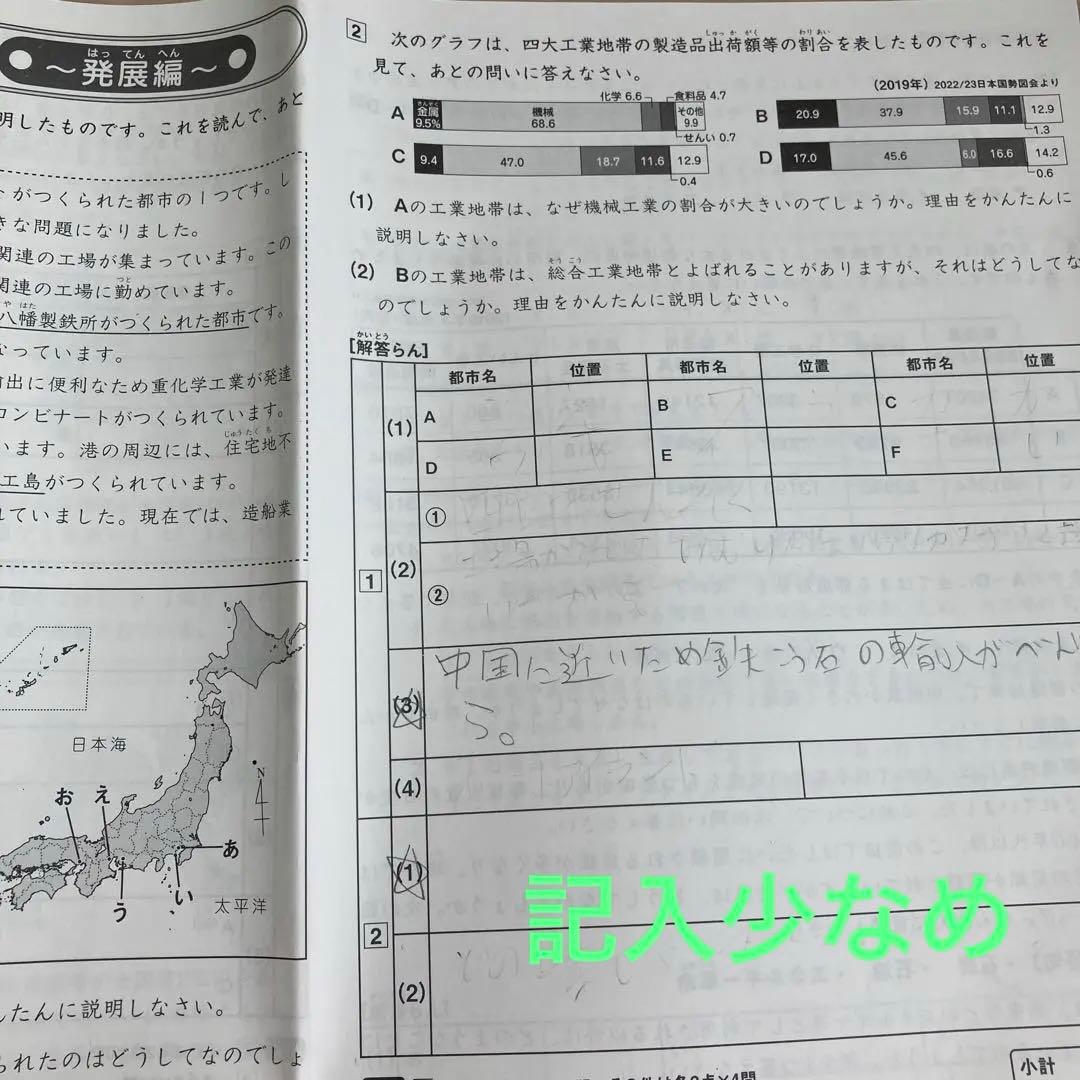 ～発展編～
はってんへん
明したものです。これを読んで、あと
がつくられた都市の1つです。し
きな問題になりました。
関連の工場が集まっています。この
関連の工場に勤めています。
八幡製鉄所がつくられた都市です。
なっています。
輸出に便利なため重化学工業が発達
コンビナートがつくられています。
います。港の周辺には、住宅地不
工島がつくられています。
れていました。現在では、造船業
日本海
N
お
え
あ
い
う
太平洋
んたんに説明しなさい。
られたのはどうしてなのでしょ
2 次のグラフは、四大工業地帯の製造品出荷額等の割合を表したものです。これを
見て、あとの問いに答えなさい。
(2019年) 2022/23日本国勢図会より
化学 6.6 食料品 4.7
A 金属 9.5% 機械 68.6 その他 9.9
せんい 0.7
B 20.9 37.9 15.9 11.1 12.9
1.3
C 9.4 47.0 18.7 11.6 12.9
0.4
D 17.0 45.6 6.0 16.6 14.2
0.6
(1) Aの工業地帯は、なぜ機械工業の割合が大きいのでしょうか。理由をかんたんに
説明しなさい。
(2) Bの工業地帯は、総合工業地帯とよばれることがありますが、それはどうしてな
のでしょうか。理由をかんたんに説明しなさい。
[解答らん]
都市名 位置 都市名 位置 都市名 位置
1
(1)
A B C
D E F
(2)
①
②
(3)
中国に近いため鉄こう石の輸入がべん
う。
(4)
2
(1)
記入少なめ
(2)
小計